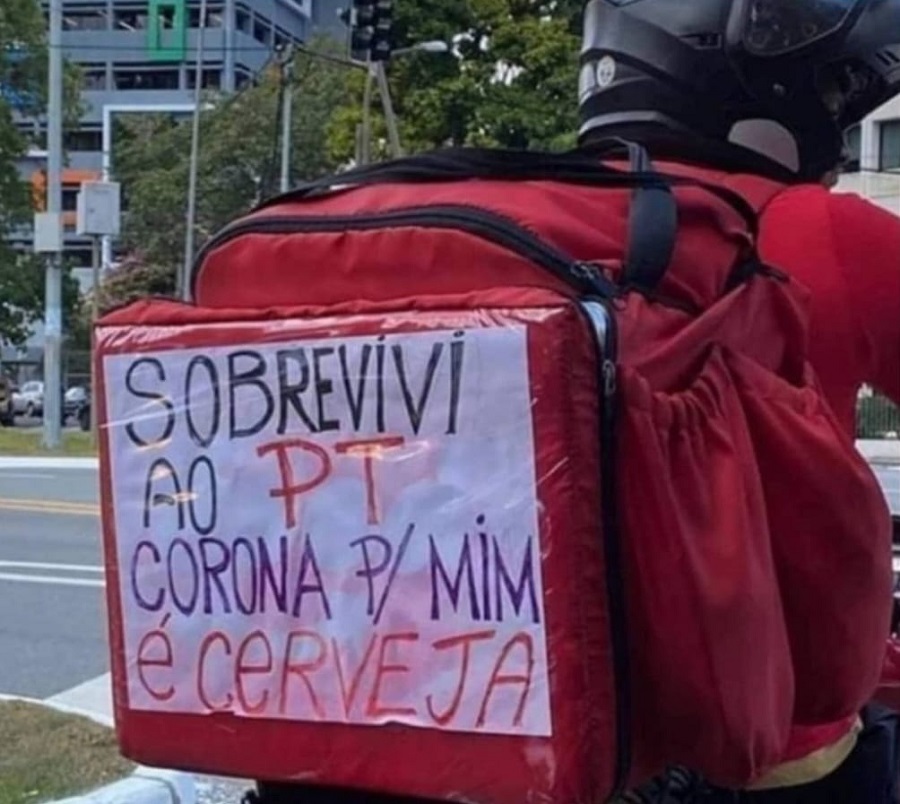 SOBREVIVI
AO PT
CORONA P/ MIM
é CERVEJA